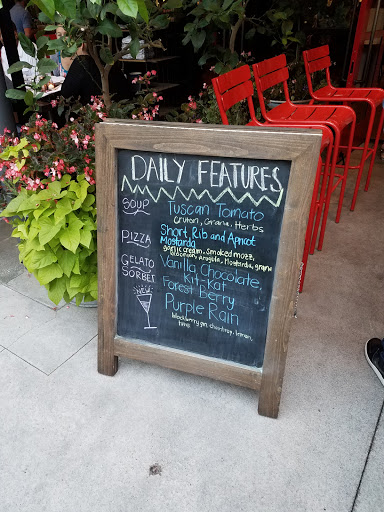 DAILY FEATURES
SOUP Tuscan Tomato
Cruton, Grana, Herbs
PIZZA Short Rib and Apricot
Mostarda
garlic cream, smoked mozz,
Arugula, Mostarda, grana
GELATO Vanilla Chocolate,
Kit-Kat
SORBET Forest Berry
NEW Purple Rain
blackberry gin, chartreus, lemon,
time